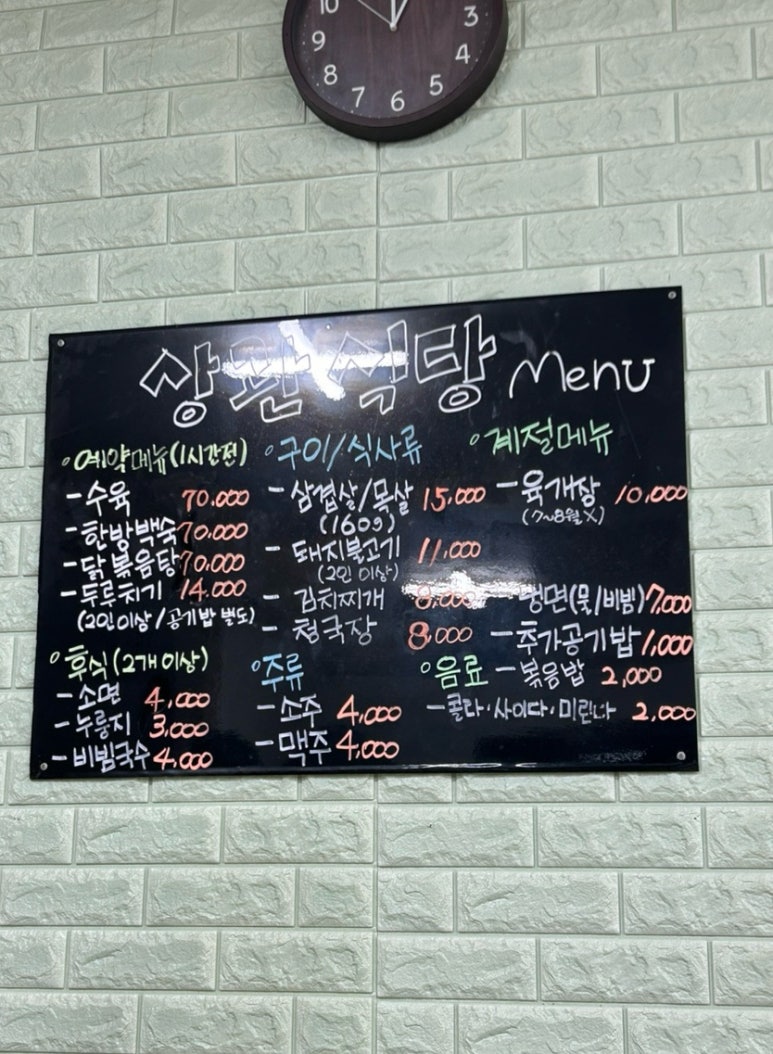 10
3
9
4
8
5
7
6
상완식당 Menu
예약메뉴(1시간전)
- 수육 70,000
- 한방백숙 70,000
- 닭볶음탕 70,000
- 두루치기 14,000
(2인이상/공기밥 별도)
후식(2개이상)
- 소면 4,000
- 누룽지 3,000
- 비빔국수 4,000
구이/식사류
- 삼겹살/목살 15,000
(160g)
- 돼지불고기 11,000
(2인 이상)
- 김치찌개 8,000
- 청국장 8,000
주류
- 소주 4,000
- 맥주 4,000
계절메뉴
- 육개장 10,000
(7~8월 X)
냉면(물/비빔) 7,000
- 추가공기밥 1,000
- 볶음밥 2,000
음료
- 콜라·사이다·미린다 2,000